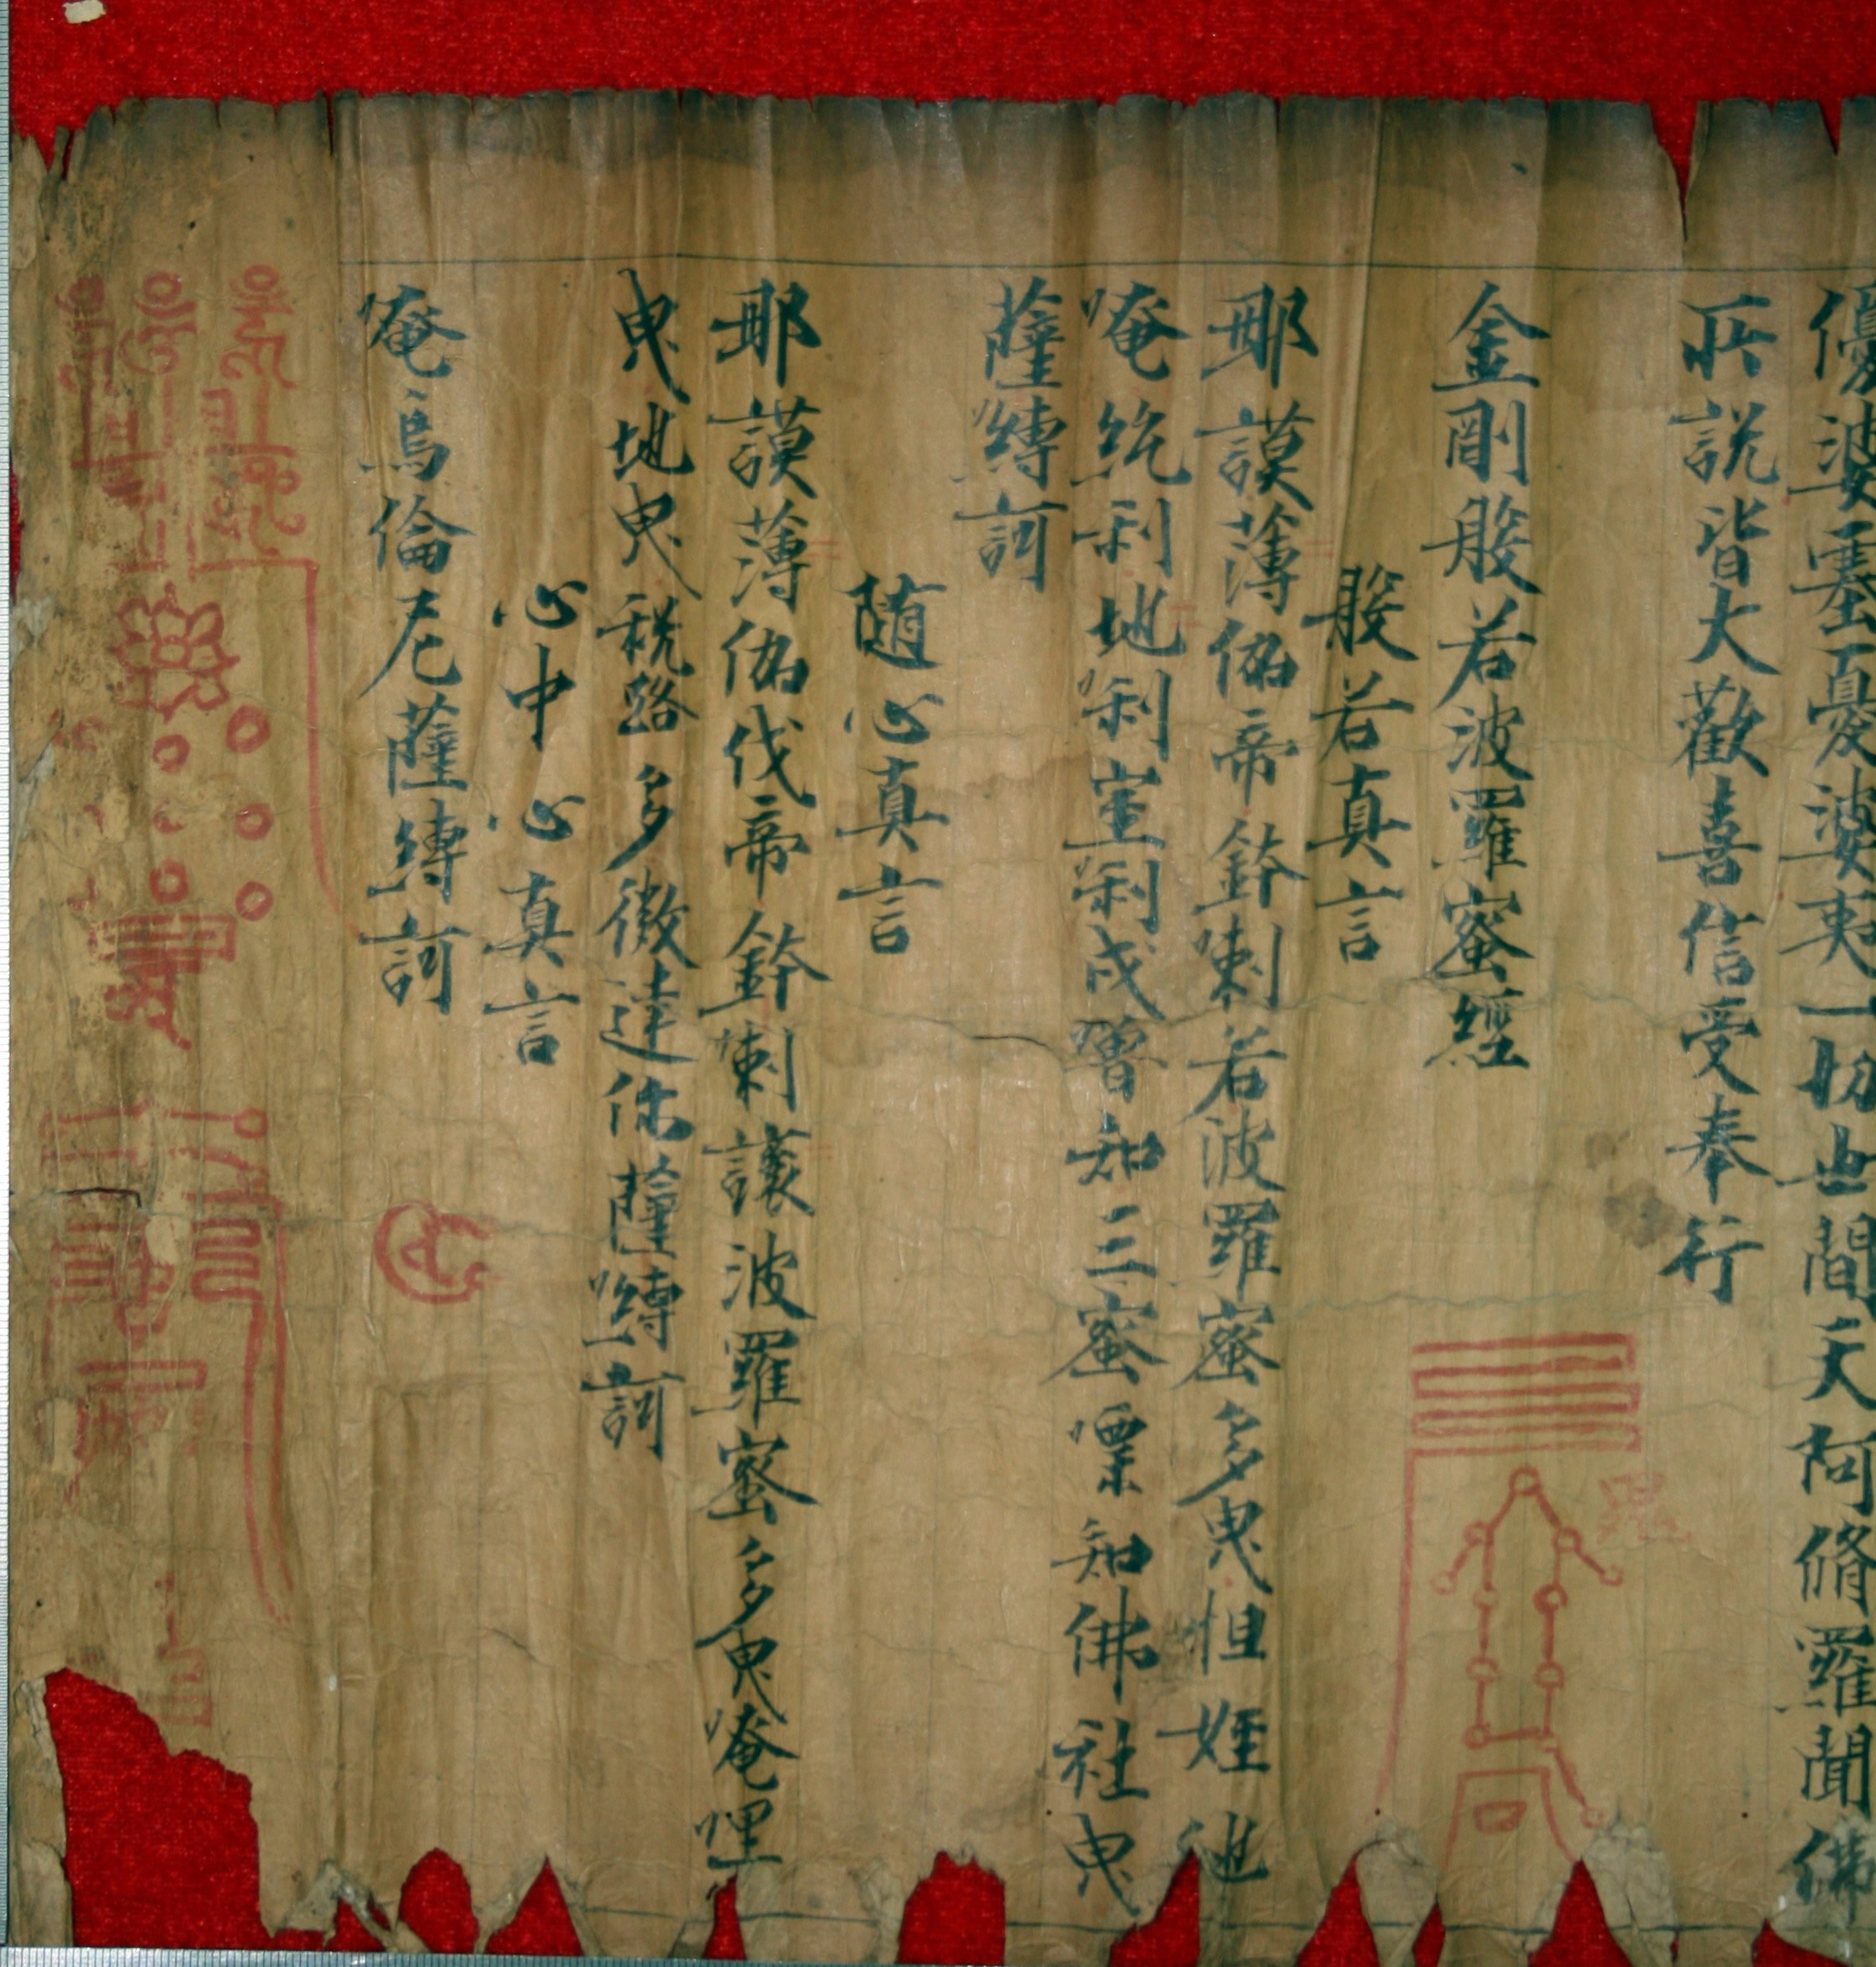 優婆塞憂婆夷一切世間天阿脩羅聞佛
所說皆大歡喜信受奉行
金剛般若波羅蜜經
般若真言
那謨薄伽帝鉢喇若波羅蜜多曳怛姪他
唵紇利地唎利室利戍嚕知三蜜㗚知佛社曳
薩縛訶
随心真言
那謨薄伽伐帝鉢喇讓波羅蜜多曳唵哩
曳地曳税路多微達你薩嚩訶
心中心真言
唵烏倫尼薩縛訶